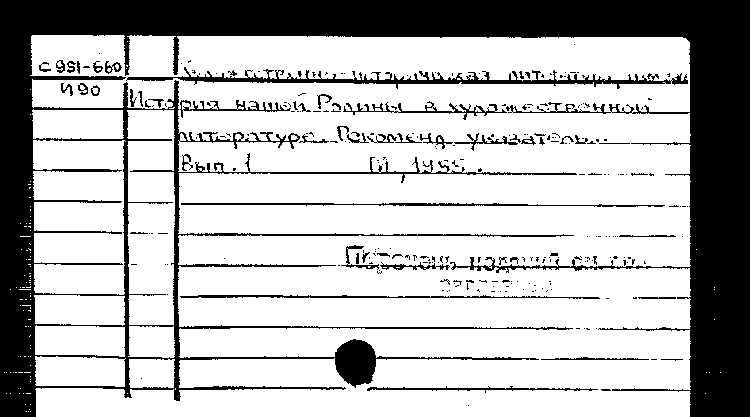 с 951-660
И90
Художественно-историческая литература,
История нашей Родины в художественной
литературе. Рекоменд. указатель...
Вып. 1 М, 1985.
Перечень изданий см. на